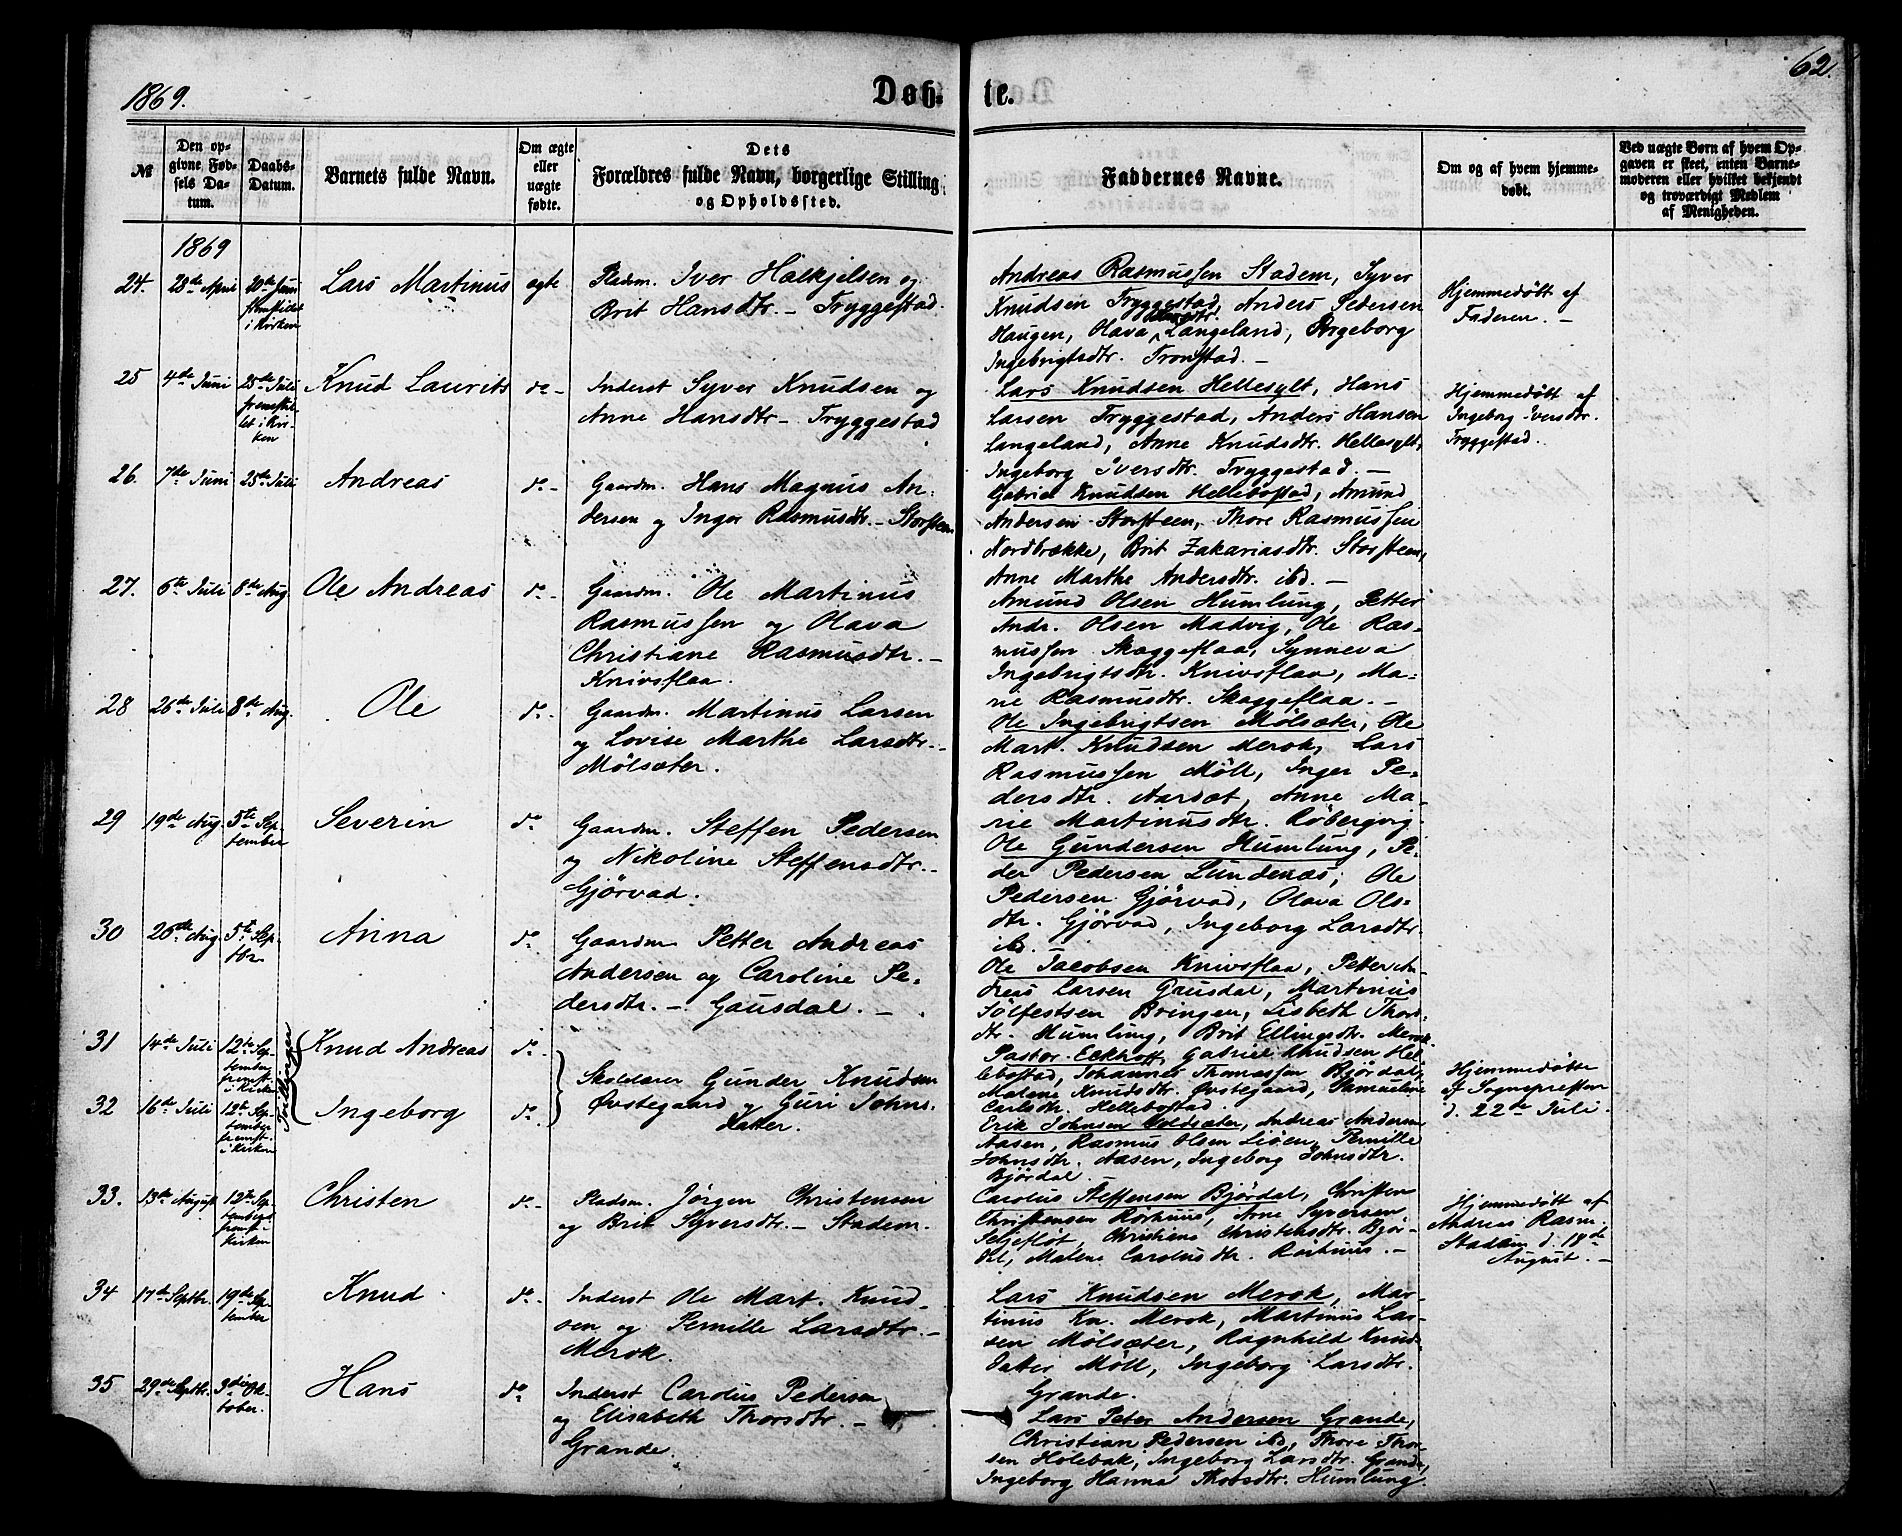 1869.
Døb-
te.
62.
№
Den op-
givne Fød-
sels Da-
tum.
Daabs-
Datum.
Barnets fulde Navn.
Om ægte
eller
uægte
fødte.
Dets
Forældres fulde Navn, borgerlige Stilling
og Opholdssted.
Faddernes Navne.
Om og af hvem hjemme-
døbt.
Ved uægte Børn af hvem Op-
gaven er skeet, enten Barne-
moderen eller hvilket bekjendt
og troværdigt Medlem
af Menigheden.
1869
24.
28de April
20de Juni
fremstillet
i Kirken
Lars Martinus
ægte
Pladsm. Iver Halkjelsen og
Brit Hansdtr. - Tryggestad.
Andreas Rasmussen Stadem, Syver
Knudsen Tryggestad, Anders Pedersen
Haugen, Olava Langeland, Ingeborg
Ingebrigtsdtr. Tronstad. -
Hjemmedøbt af
Faderen. -
25
4de Juni
25de Juli
fremstil-
let i Kir-
ken
Knud Laurits
do -
Inderst Syver Knudsen og
Anne Hansdtr - Tryggestad
Lars Knudsen Hellesylt, Hans
Larsen Tryggestad, Anders Hansen
Langeland, Anne Knudsdtr. Hellesylt,
Ingeborg Iversdtr. Tryggestad. -
Hjemmedøbt af
Ingeborg Iversdtr.
Tryggestad.
26.
7de Juni
25de Juli
Andreas
do -
Gaardm. Hans Magnus An-
dersen og Inger Rasmusdtr. - Storsteen
Gabriel Knudsen Hellebostad, Amund
Andersen Storsteen, Thore Rasmussen
Nordbrække, Brit Zakariasdtr. Storsteen,
Anne Marthe Andersdtr. ibd. -
27.
6te Juli
8de Aug
Ole Andreas
do -
Gaardm. Ole Martinus
Rasmussen og Olava
Christiane Rasmusdtr. -
Knivsflaa.
Amund Olsen Humlung, Petter
Andr. Olsen Madvig, Ole Ras-
mussen Skaggeflaa, Synneva
Ingebrigtsdtr. Knivsflaa, Ma-
rie Rasmusdtr. Skaggeflaa. -
28
26de Juli
8de Aug.
Ole
do -
Gaardm. Martinus Larsen
og Lovise Marthe Larsdtr. -
Mølsæter.
Ole Ingebrigtsen Mølsæter, Ole
Mart. Knudsen Merok, Lars
Rasmussen Møll, Inger Pe-
dersdtr. Aarsæt, Anne Ma-
rie Martinusdtr. Røbergvig.
29
19de Aug.
5te Sep-
tember
Severin
do
Gaardm. Steffen Pedersen
og Nikoline Steffensdtr. -
Gjørvad.
Ole Gundersen Humlung, Pe-
der Pedersen Lundenæs, Ole
Pedersen Gjørvad, Olava Ols-
dtr. Gjørvad, Ingeborg Larsdtr
ibd.
30
26de Aug.
5te Sep-
tbr
Anna
do
Gaardm Petter Andreas
Andersen og Caroline Pe-
dersdtr. - Gausdal. -
Ole Jacobsen Knivsflaa, Petter An-
dreas Larsen Gausdal, Martinus
Sølfestsen Bringen, Lisbeth Thors-
dtr. Humlung, Brit Ellingsdtr. Merok.
31
14de Juli
12te Sep-
tember
fremst.
i Kirken
Tvillinger
Knud Andreas
do -
Skolelærer Gunder Knudsen
Øvstegaard og Guri Johns-
datter.
Pastor Eckhoff, Gabriel Knudsen Hel-
lebostad, Johannes Thomassen Bjørdal,
Malene Knudsdtr. Øvstegaard, Samueline
Carlsdtr. Hellebostad.
Hjemmedøbte
af Sognepresten
d. 22de Juli.
32
16de Juli
12te Sep-
tember
fremst.
i Kirken
Ingeborg
do -
Erik Johnsen Voldsæter, Andreas Andersen
Aasen, Rasmus Olsen Liøen, Pernille
Johnsdtr. Aasen, Ingeborg Johnsdtr.
Bjørdal. -
33.
13de August
12te Sep-
tember
fremst. i
Kirken
Christen
do -
Pladsm. Jørgen Christensen
og Brit Syversdtr. - Stadem.
Carolus Steffensen Bjørdal, Christen
Christensen Rørhuus, Arne Syversen
Seljeflot, Christiane Christensdtr. Bjør-
dal, Malene Carolusdtr. Rørhuus. -
Hjemmedøbt af
Andreas Rasm.
Stadem d. 18de
August. -
34
17de Septbr.
19de Sep-
tember
Knud
do -
Inderst Ole Mart. Knud-
sen og Pernille Larsdtr. -
Merok.
Lars Knudsen Merok, Mar-
tinus Kn. Merok, Martinus Lar-
sen Mølsæter, Ragnhild Knuds-
datter Møll, Ingeborg Larsdtr.
Grande.
35
29de Septbr.
3die Ok-
tober.
Hans
do
Inderst Carolus Pedersen
og Elisabeth Thorsdtr. -
Grande.
Lars Peter Andersen Grande,
Christian Pedersen ibd, Thore Thor-
sen Holebak, Ingeborg Larsdtr. Grande,
Ingeborg Hanna Thorsdtr. Humlung.